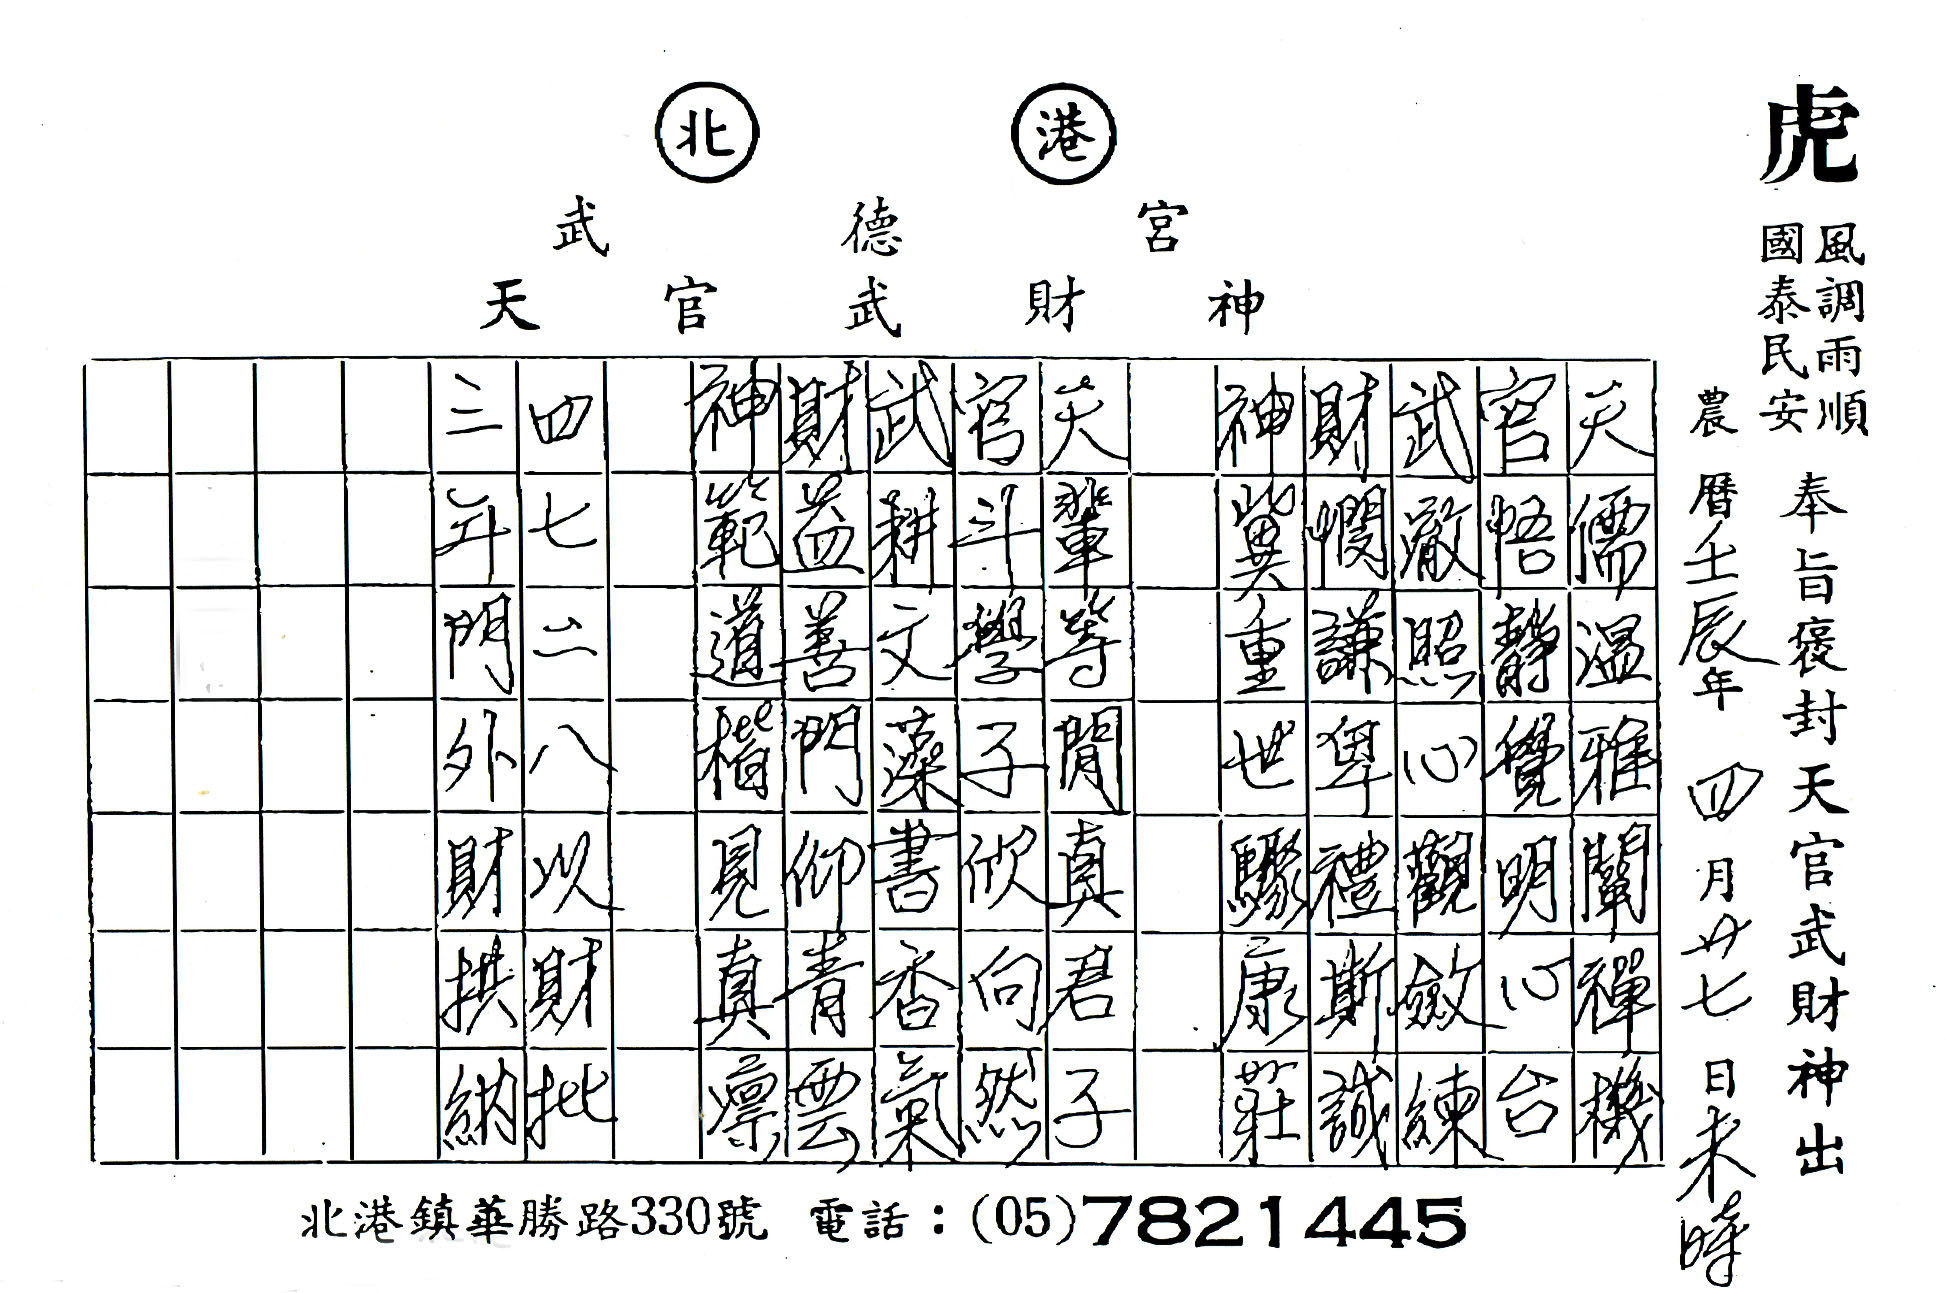 北 港
武 德 宮
天 官 武 財 神
虎
風調雨順
國泰民安
奉旨褒封天官武財神出
農曆壬辰年四月廿七日未時
天儒溫雅闡禪機
官悟靜覺明心台
武澈照心觀斂練
財憫謙卑禮斯誠
神冀重世驟康莊
天輩等閒真君子
官斗學子欣向然
武耕文藻書香氣
財益善門仰青雲
神範道楷見真凜
四七二八以財批
三年門外財拱納
北港鎮華勝路330號 電話：(05)7821445